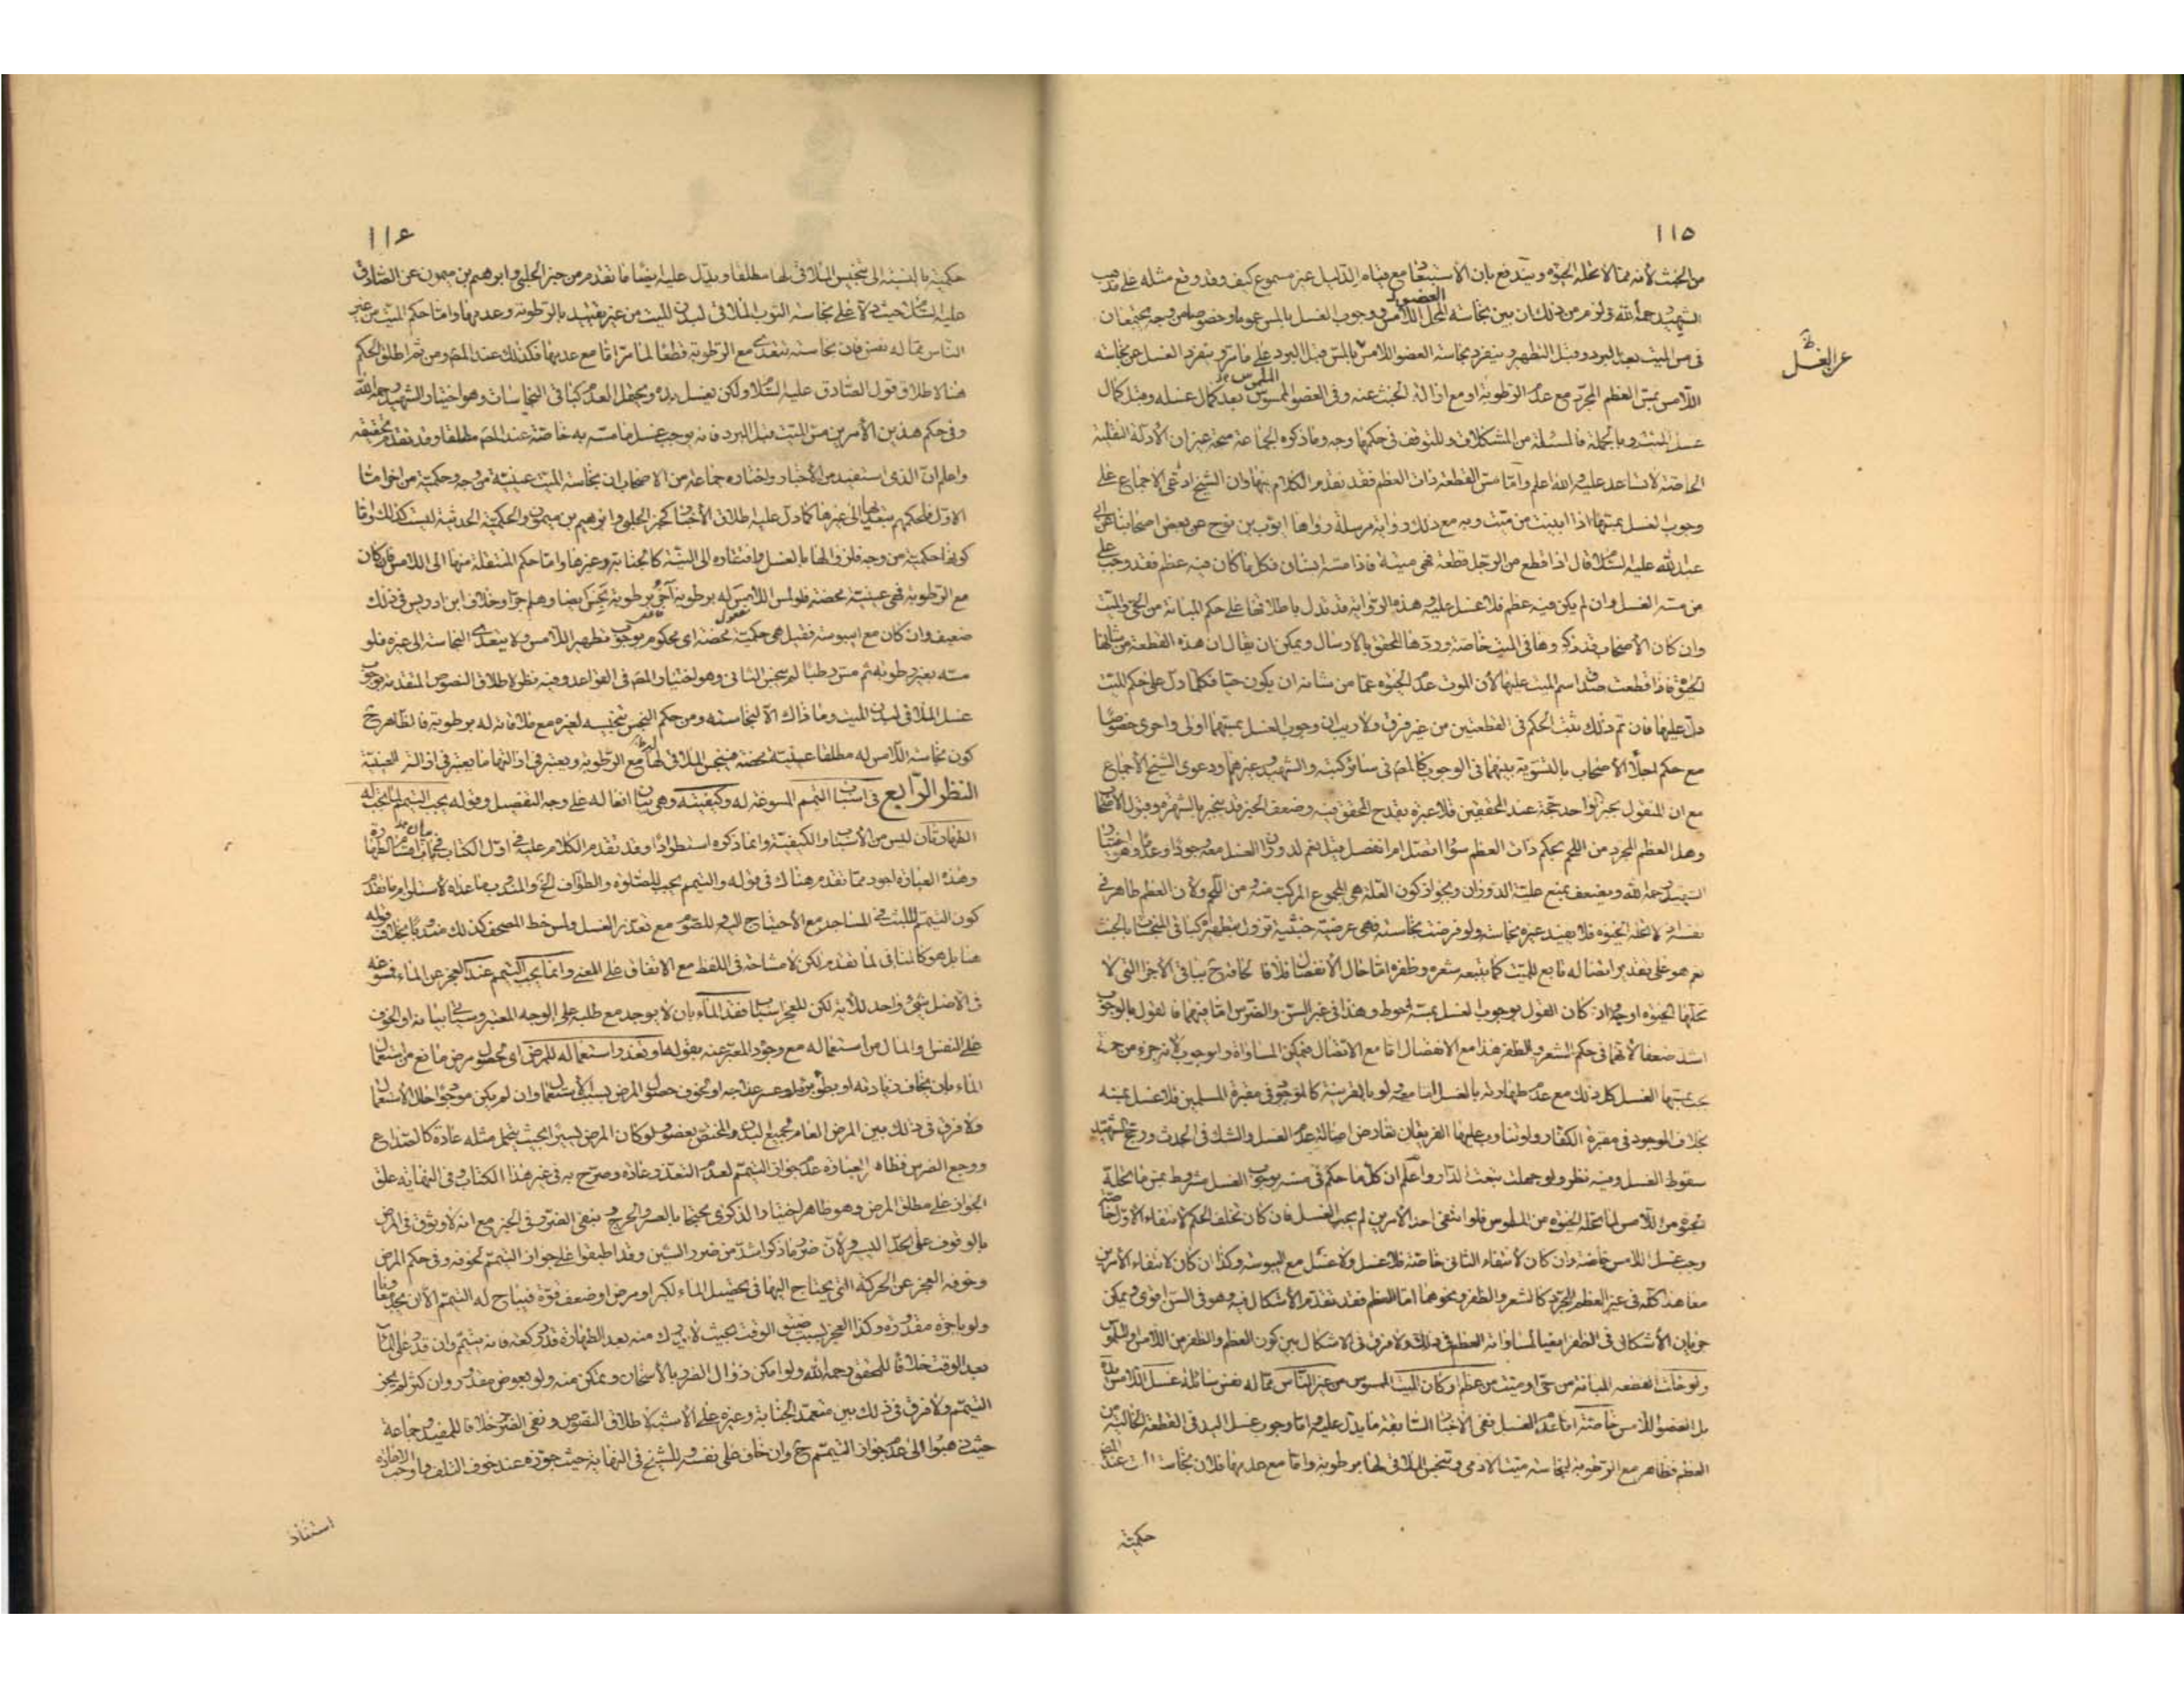 ١١٥
من الخبث لأنه مما لا تحله الحيوة ويندفع بان الاستبعاد مع قيام الدليل غير مسموع كيف وقد وقع مثله على مذهب
الشهيد رحمه الله ولزم من ذلك ان بين نجاسة المحل اللامس ووجوب الغسل بالمس عموما وخصوصا من وجه يجتمعان
العضو
في مس الميت بعد البرد وقبل التطهير وينفرد نجاسة العضو اللامس بالمس قبل البرد على ما مر وينفرد الغسل عن نجاسة
عن الغسل
اللامس بمس العظم المجرد مع عدم الرطوبة او مع ازالة الخبث عنه وفي العضو الممسوس بعد كمال غسله وقبل كمال
غسل الميت وبالجملة فالمسئلة من المشكلات وللتوقف في حكمها وجه وما ذكره الجماعة متجه غير ان الادلة النقلية
الخاصة لا تساعد عليه والله اعلم واما مس القطعة ذات العظم فقد تقدم الكلام فيها وان الشيخ ادعى الاجماع على
وجوب الغسل بمسها اذا ابينت من ميت وبه مع ذلك رواية مرسلة رواها ايوب بن نوح عن بعض اصحابنا عن ابي
عبد الله عليه السلام قال اذا قطع من الرجل قطعة فهي ميتة فاذا مسه انسان فكل ما كان فيه عظم فقد وجب على
من مسه الغسل وان لم يكن فيه عظم فلا غسل عليه وهذه الرواية قد تدل باطلاقها على حكم المبانة من الحي والميت
وان كان الأصحاب قد ذكروها في الميت خاصة وردها المحقق بالارسال ويمكن ان يقال ان هذه القطعة من شانها
الحيوة فاذا قطعت صدق اسم الميت عليها لأن الموت عدم الحيوة عما من شانه ان يكون حيا فكلما دل على حكم الميت
دل عليها فان تم ذلك ثبت الحكم في القطعتين من غير فرق ولا ريب ان وجوب الغسل بمسهما اولى واحرى خصوصا
مع حكم اجلاء الأصحاب بالتسوية بينهما في الوجوب كالمص في سائر كتبه والشهيد وغيرهما ودعوى الشيخ الاجماع
مع ان المنقول بخبر الواحد حجة عند المحققين فلا عبرة بقدح المحقق فيه وضعف الخبر قد ينجبر بالشهرة وقبول الاصحاب
وهل العظم المجرد من اللحم بحكم ذات العظم سواء اتصل ام انفصل قيل نعم لدوران الغسل معه وجودا وعدما وهو اختيار
الشهيد رحمه الله ويضعف بمنع علية الدوران وبجواز كون العلة هي المجموع المركب منه ومن اللحم ولان العظم طاهر في
نفسه اذ لا تحله الحيوة فلا يفيد غيره نجاسة ولو فرضت نجاسته فهي عرضية خبثية تزول بتطهيره كباقي المتنجسات بالخبث
نعم هو على تقدير اتصاله تابع للميت كما يتبعه شعره وظفره اما حال الانفصال فلا فالحاقه ح بباقي الاجزاء التي لا
تحلها الحيوة اوجه وان كان القول بوجوب الغسل بمسه احوط وهذا في غير السن والضرس اما فيهما فالقول بالوجوب
اشد ضعفا لانهما في حكم الشعر والظفر هذا مع الانفصال اما مع الاتصال فيمكن المساواة والوجوب لانه جزء من جملة
يجب بمسها الغسل كل ذلك مع عدم طهارته بالغسل اما معه ولو بالقرينة كالموجود في مقبرة المسلمين فلا غسل بمسه
بخلاف الموجود في مقبرة الكفار ولو تناوب عليها الفريقان تعارض اصالة عدم الغسل والشك في الحدث ورجح الشهيد
سقوط الغسل وفيه نظر ولو جهلت تبعت الدار واعلم ان كل ما حكم في مسه بوجوب الغسل مشروط بمس ما تحله
الحيوة من اللامس لما تحله الحيوة من الملموس فلو انتفى احد الأمرين لم يجب الغسل فان كان تخلف الحكم لانتفاء الاول خاصة
وجب غسل اللامس خاصة وان كان لانتفاء الثاني خاصة فلا غسل ولا غسل مع اليبوسة وكذا ان كان لانتفاء الأمرين
معا هذا كله في غير العظم المجرد كالشعر والظفر ونحوهما اما العظم فقد تقدم الأشكال فيه وهو في السن اقوى ويمكن
جريان الأشكال في الظفر ايضا لمساواته العظم في ذلك ولا فرق في الاشكال بين كون العظم والظفر من اللامس والملموس
ولو خلت القطعة المبانة من حي او ميت من عظم او كان الميت الممسوس من غير الناس مما له نفس سائلة غسل اللامس يده
بل العضو اللامس خاصة اما عدم الغسل ففي الأخبار السابقة ما يدل عليه واما وجوب غسل اليد في القطعة الخالية من
العظم فظاهر مع الرطوبة لنجاسة ميت الادمي وتنجس الملاقي لها برطوبة واما مع عدمها فلان نجاسة الميت عند المص
حكمية
١١٦
حكمية بالنسبة الى تنجيس الملاقي لها مطلقا ويدل عليه ايضا ما تقدم من خبر الحلبي وابرهيم بن ميمون عن الصادق
عليه السلام حيث دلا على نجاسة الثوب الملاقي لبدن الميت من غير تقييد بالرطوبة وعدمها واما حكم الميت من غير
الناس مما له نفس فان نجاسته تتعدى مع الرطوبة قطعا لما مر اما مع عدمها فكذلك عند المص ومن ثم اطلق الحكم
هنا لاطلاق قول الصادق عليه السلام ولكن يغسل يده ويحتمل العدم كباقي النجاسات وهو اختيار الشهيد رحمه الله
وفي حكم هذين الأمرين مس الميت قبل البرد فانه يوجب غسل ما مسه به خاصة عند المص مطلقا وقد تقدم تحقيقه
واعلم ان الذي استفيد من الأخبار واختاره جماعة من الاصحاب ان نجاسة الميت عينية من وجه وحكمية من اخر اما
الاول فلحكمهم بتعديها الى غيرها كما دل عليه اطلاق الأخبار كخبر الحلبي وابرهيم بن ميمون والحكمية الحدثية ليست كذلك واما
كونها حكمية من وجه فلزوالها بالغسل وافتقاره الى النية كالجنابة وغيرها واما حكم المنتقلة منها الى اللامس فان كان
مع الرطوبة فهي عينية محضة فلو لمس اللامس له برطوبة آخر برطوبة نجس ايضا وهلم جرا وخلاف ابن ادريس في ذلك
ضعيف وان كان مع اليبوسة فقيل هي حكمية محضة اي محكوم بوجوب تطهير اللامس ولا يتعدى النجاسة الى غيره فلو
مسه بغير رطوبة ثم مس رطبا لم ينجس الثاني وهو اختيار المص في القواعد وفيه نظر لاطلاق النصوص المتقدمة بوجوب
غسل الملاقي لبدن الميت وما ذاك الا لنجاسته ومن حكم النجس تنجيسه لغيره مع ملاقاته له برطوبة فالظاهر ح
كون نجاسة اللامس له مطلقا عينية محضة فينجس الملاقي لها مع الرطوبة ويعتبر في ازالتها ما يعتبر في ازالة العينية
النظر الرابع في اسباب التيمم المسوغة له وكيفيته وهي بيان افعاله على وجه التفصيل وقوله يجب التيمم لما يجب له
الطهارتان ليس من الأسباب ولا الكيفية وانما ذكره استطرادا وقد تقدم الكلام عليه في اول الكتاب في باب اقسام الطهارة
وهذه العبارة اجود مما تقدم هناك في قوله والتيمم يجب للصلوة والطواف الخ والمندوب ما عداه لاستلزام ما تقدم
كون التيمم للبث في المساجد مع الأحتياج اليه وللصوم مع تعذر الغسل ولمس خط المصحف كذلك مندوبا بخلاف قوله
هنا بل هو كالمنافي لما تقدم لكن لا مشاحة في اللفظ مع الاتفاق على المعنى وانما يجب التيمم عند العجز عن الماء فمسوغه
في الأصل شيء واحد للآية لكن للعجز اسباب فقد الماء بان لا يوجد مع طلبه على الوجه المعتبر وسياتي بيانه او الخوف
على النفس والمال من استعماله مع وجوده المعبر عنه بقوله او تعذر استعماله للمرض اي لحصول مرض مانع من استعمال
الماء بان يخاف زيادته او بطؤ برئه او عسر علاجه او لخوف حصول المرض بسبب الأستعمال وان لم يكن موجودا حال الأستعمال
ولا فرق في ذلك بين المرض العام لجميع البدن والمختص بعضو ولو كان المرض يسيرا بحيث يتحمل مثله عادة كالصداع
ووجع الضرس فظاهر العبارة عدم جواز التيمم لعدم التعذر عادة وصرح به في غير هذا الكتاب وفي النهاية علق
الجواز على مطلق المرض وهو ظاهر اختيار الذكرى محتجا بالعسر والحرج وبنفي الضرر في الخبر مع انه لا وثوق في المرض
بالوقوف على الحد اليسير ولأن ضرر ما ذكر اشد من ضرر الشين وقد اطبقوا على جواز التيمم لخوفه وفي حكم المرض
وخوفه العجز عن الحركة التي يحتاج اليها في تحصيل الماء لكبر او مرض او ضعف قوة فيباح له التيمم الا ان يجد معاونا
ولو باجرة مقدورة وكذا العجز بسبب ضيق الوقت بحيث لا يدرك منه بعد الطهارة قدر ركعة فانه يتيمم وان قدر على الماء
بعد الوقت خلافا للمحقق رحمه الله ولو امكن زوال الضرر بالأسخان وتمكن منه ولو بعوض مقدور وان كثر لم يجز
التيمم ولا فرق في ذلك بين متعمد الجنابة وغيره على الأشبه لاطلاق النصوص ونفي الضرر خلافا للمفيد وجماعة
حيث ذهبوا الى عدم جواز التيمم ح وان خاف على نفسه وللشيخ في النهاية حيث جوزه عند خوف التلف واوجب الاعادة
استناد